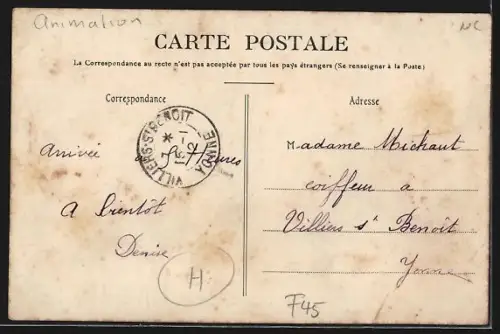 Animation
CARTE POSTALE
La Correspondance au recto n'est pas acceptée par tous les pays étrangers (Se renseigner à la Poste)
Correspondance
Adresse
VILLIERS-St BENOIT
YONNE
Arrivée
Heures
A bientôt
Denise
Madame Michaut
coiffeur a
Villiers St Benoît
Yonne
H
F45